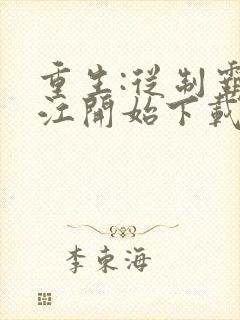 重生:從制霸
江開始下載
李東海